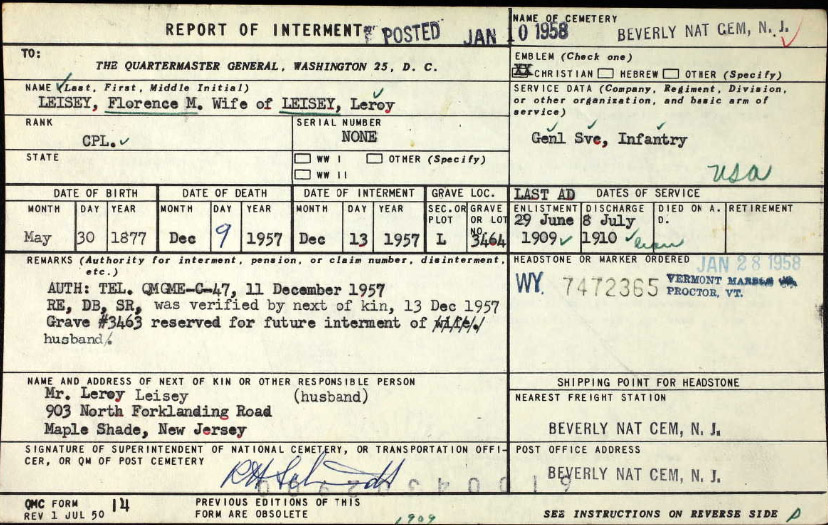 REPORT OF INTERMENT POSTED JAN 10 1958
NAME OF CEMETERY
BEVERLY NAT CEM, N. J.
TO:
THE QUARTERMASTER GENERAL, WASHINGTON 25, D. C.
EMBLEM (Check one)
XX CHRISTIAN HEBREW OTHER (Specify)
NAME (Last, First, Middle Initial)
LEISEY, Florence M. Wife of LEISEY, Leroy
SERVICE DATA (Company, Regiment, Division,
or other organization, and basic arm of
service)
Genl Svc, Infantry
USA
RANK
CPL.
SERIAL NUMBER
NONE
STATE
WW I OTHER (Specify)
WW II
DATE OF BIRTH DATE OF DEATH DATE OF INTERMENT GRAVE LOC.
MONTH DAY YEAR MONTH DAY YEAR MONTH DAY YEAR SEC. OR PLOT GRAVE OR LOT NO.
May 30 1877 Dec 9 1957 Dec 13 1957 L 3464
LAST AD DATES OF SERVICE
ENLISTMENT DISCHARGE DIED ON A. D. RETIREMENT
29 June 8 July
1909 1910
REMARKS (Authority for interment, pension, or claim number, disinterment,
etc.)
AUTH: TEL. QMGME-C-47, 11 December 1957
RE, DB, SR, was verified by next of kin, 13 Dec 1957
Grave #3463 reserved for future interment of wife.
husband.
HEADSTONE OR MARKER ORDERED JAN 28 1958
WY. 7472365 VERMONT MARBLE
PROCTOR, VT.
NAME AND ADDRESS OF NEXT OF KIN OR OTHER RESPONSIBLE PERSON
Mr. Leroy Leisey (husband)
903 North Forklanding Road
Maple Shade, New Jersey
SHIPPING POINT FOR HEADSTONE
NEAREST FREIGHT STATION
BEVERLY NAT CEM, N. J.
SIGNATURE OF SUPERINTENDENT OF NATIONAL CEMETERY, OR TRANSPORTATION OFFI-
CER, OR QM OF POST CEMETERY
POST OFFICE ADDRESS
BEVERLY NAT CEM, N. J.
QMC FORM 14
REV 1 JUL 50
PREVIOUS EDITIONS OF THIS
FORM ARE OBSOLETE
1909
SEE INSTRUCTIONS ON REVERSE SIDE